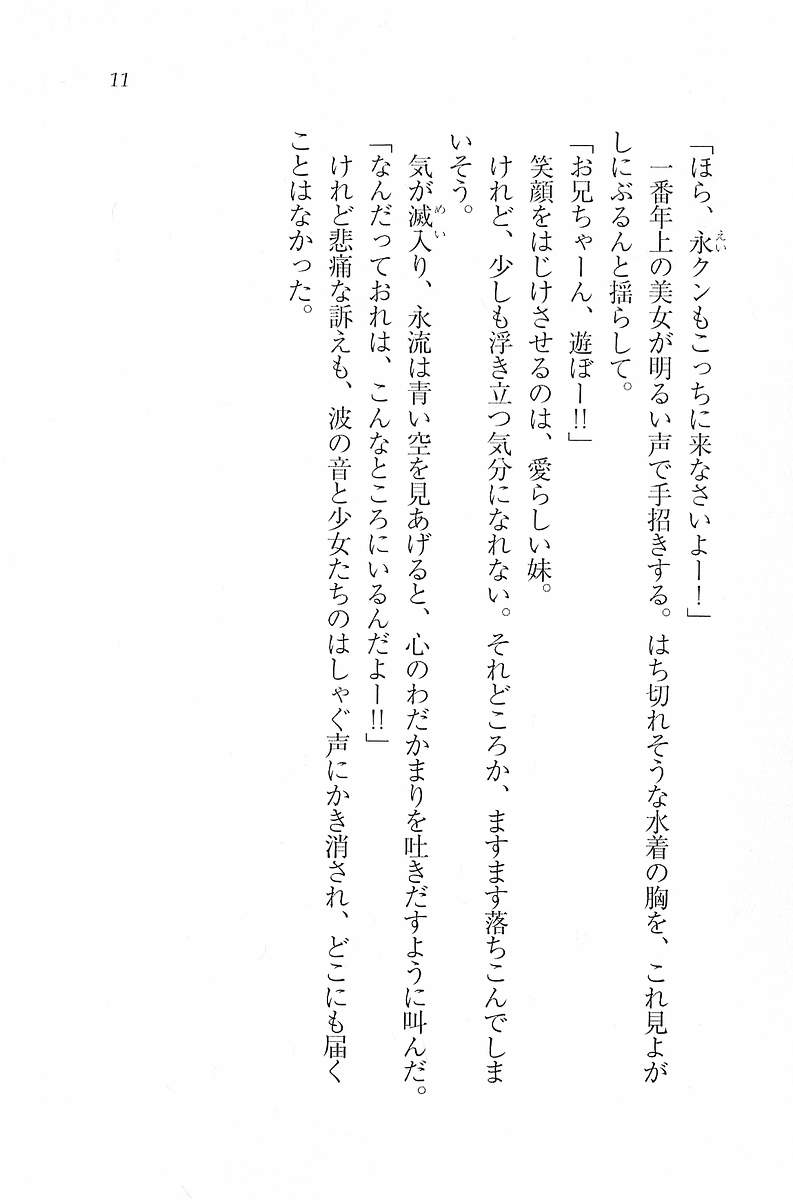 11
「ほら、永クンもこっちに来なさいよー！」
一番年上の美女が明るい声で手招きする。はち切れそうな水着の胸を、これ見よが
しにぶるんと揺らして。
「お兄ちゃーん、遊ぼー!!」
笑顔をはじけさせるのは、愛らしい妹。
けれど、少しも浮き立つ気分になれない。それどころか、ますます落ちこんでしま
いそう。
気が滅入り、永流は青い空を見あげると、心のわだかまりを吐きだすように叫んだ。
「なんだっておれは、こんなところにいるんだよー!!」
けれど悲痛な訴えも、波の音と少女たちのはしゃぐ声にかき消され、どこにも届く
ことはなかった。
えい
めい